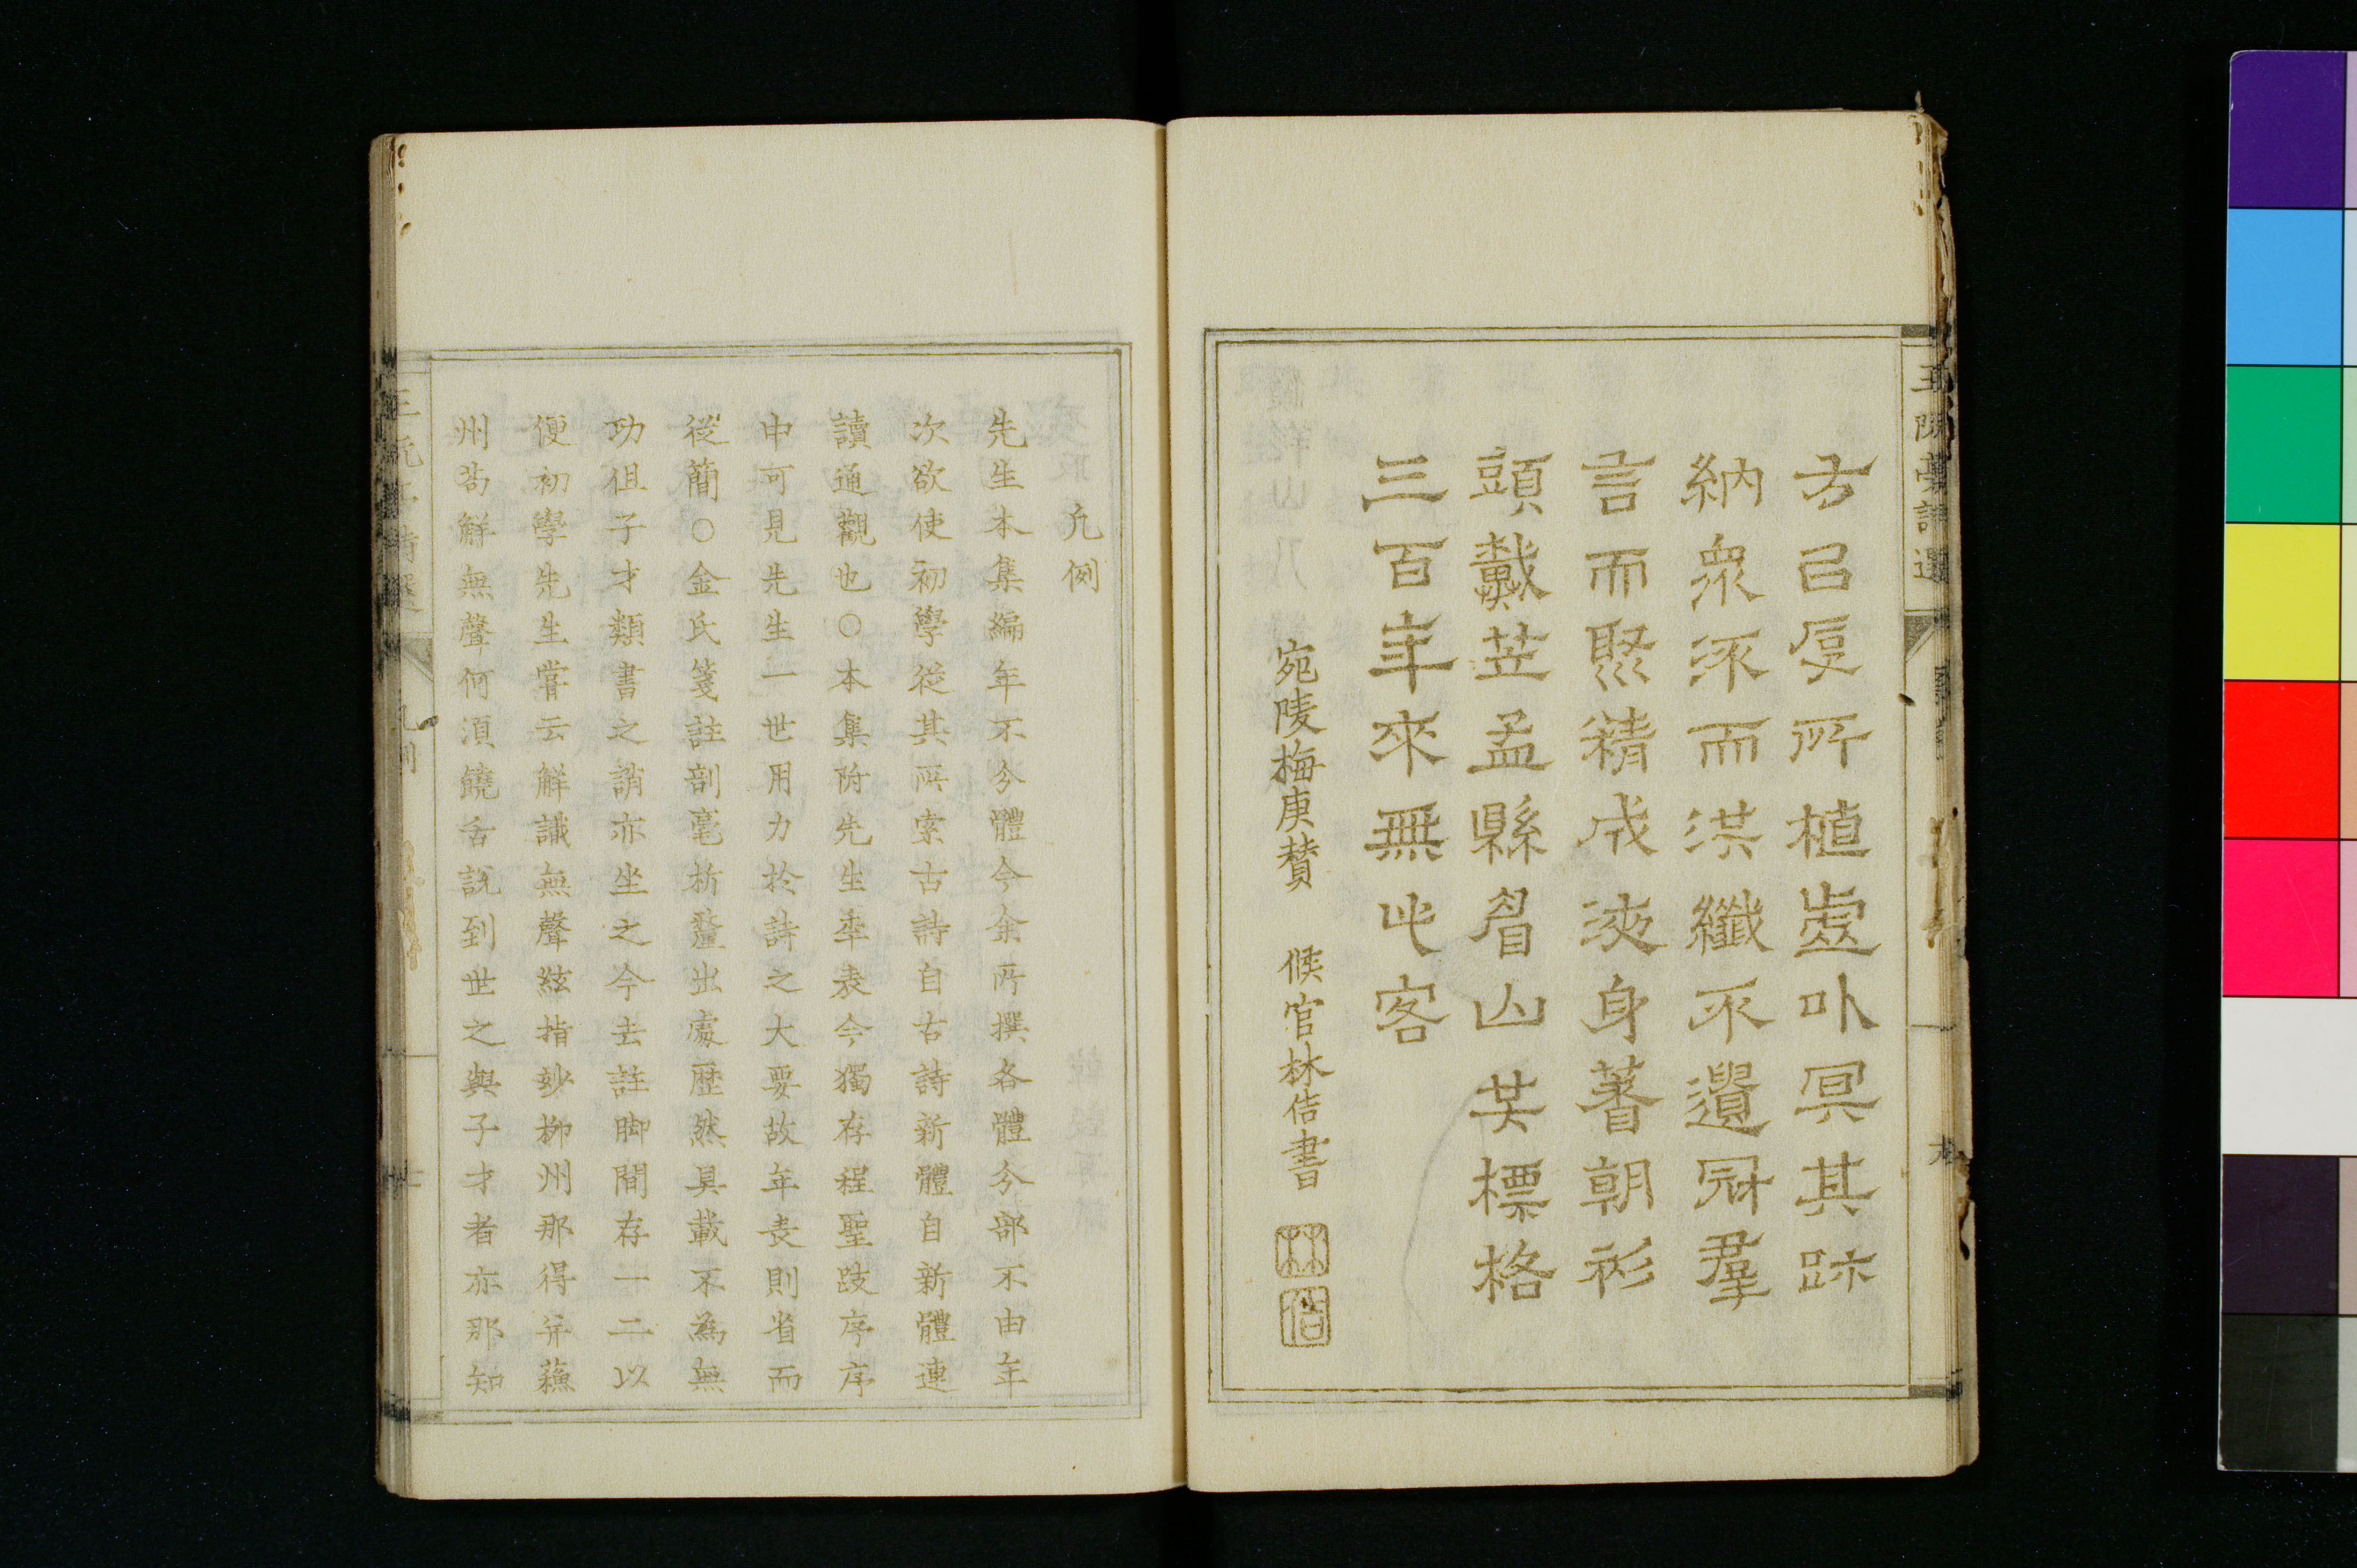 王阮亭詩選
方呂厚所植處以冥其跡
納衆流而洪纖不遺冠羣
言而聚精成液身著朝衫
頭戴笠孟縣眉山共標格
三百年來無此客
宛陵梅庚贊　候官林佶書
林佶
凡例
先生本集編年不分體今余所撰各體分部不由年
次欲使初學從其所索古詩自古詩新體自新體連
讀通觀也○本集附先生年表今獨存程聖跂序序
中可見先生一世用力於詩之大要故年表則省而
從簡○金氏箋註剖毫析釐出處歴然具載不為無
功但子才類書之誚亦坐之今去註脚間存一二以
便初學先生嘗云解識無聲絃指妙柳州那得并蘇
州苟解無聲何須饒舌說到世之與子才者亦那知
王阮亭詩選　凡例